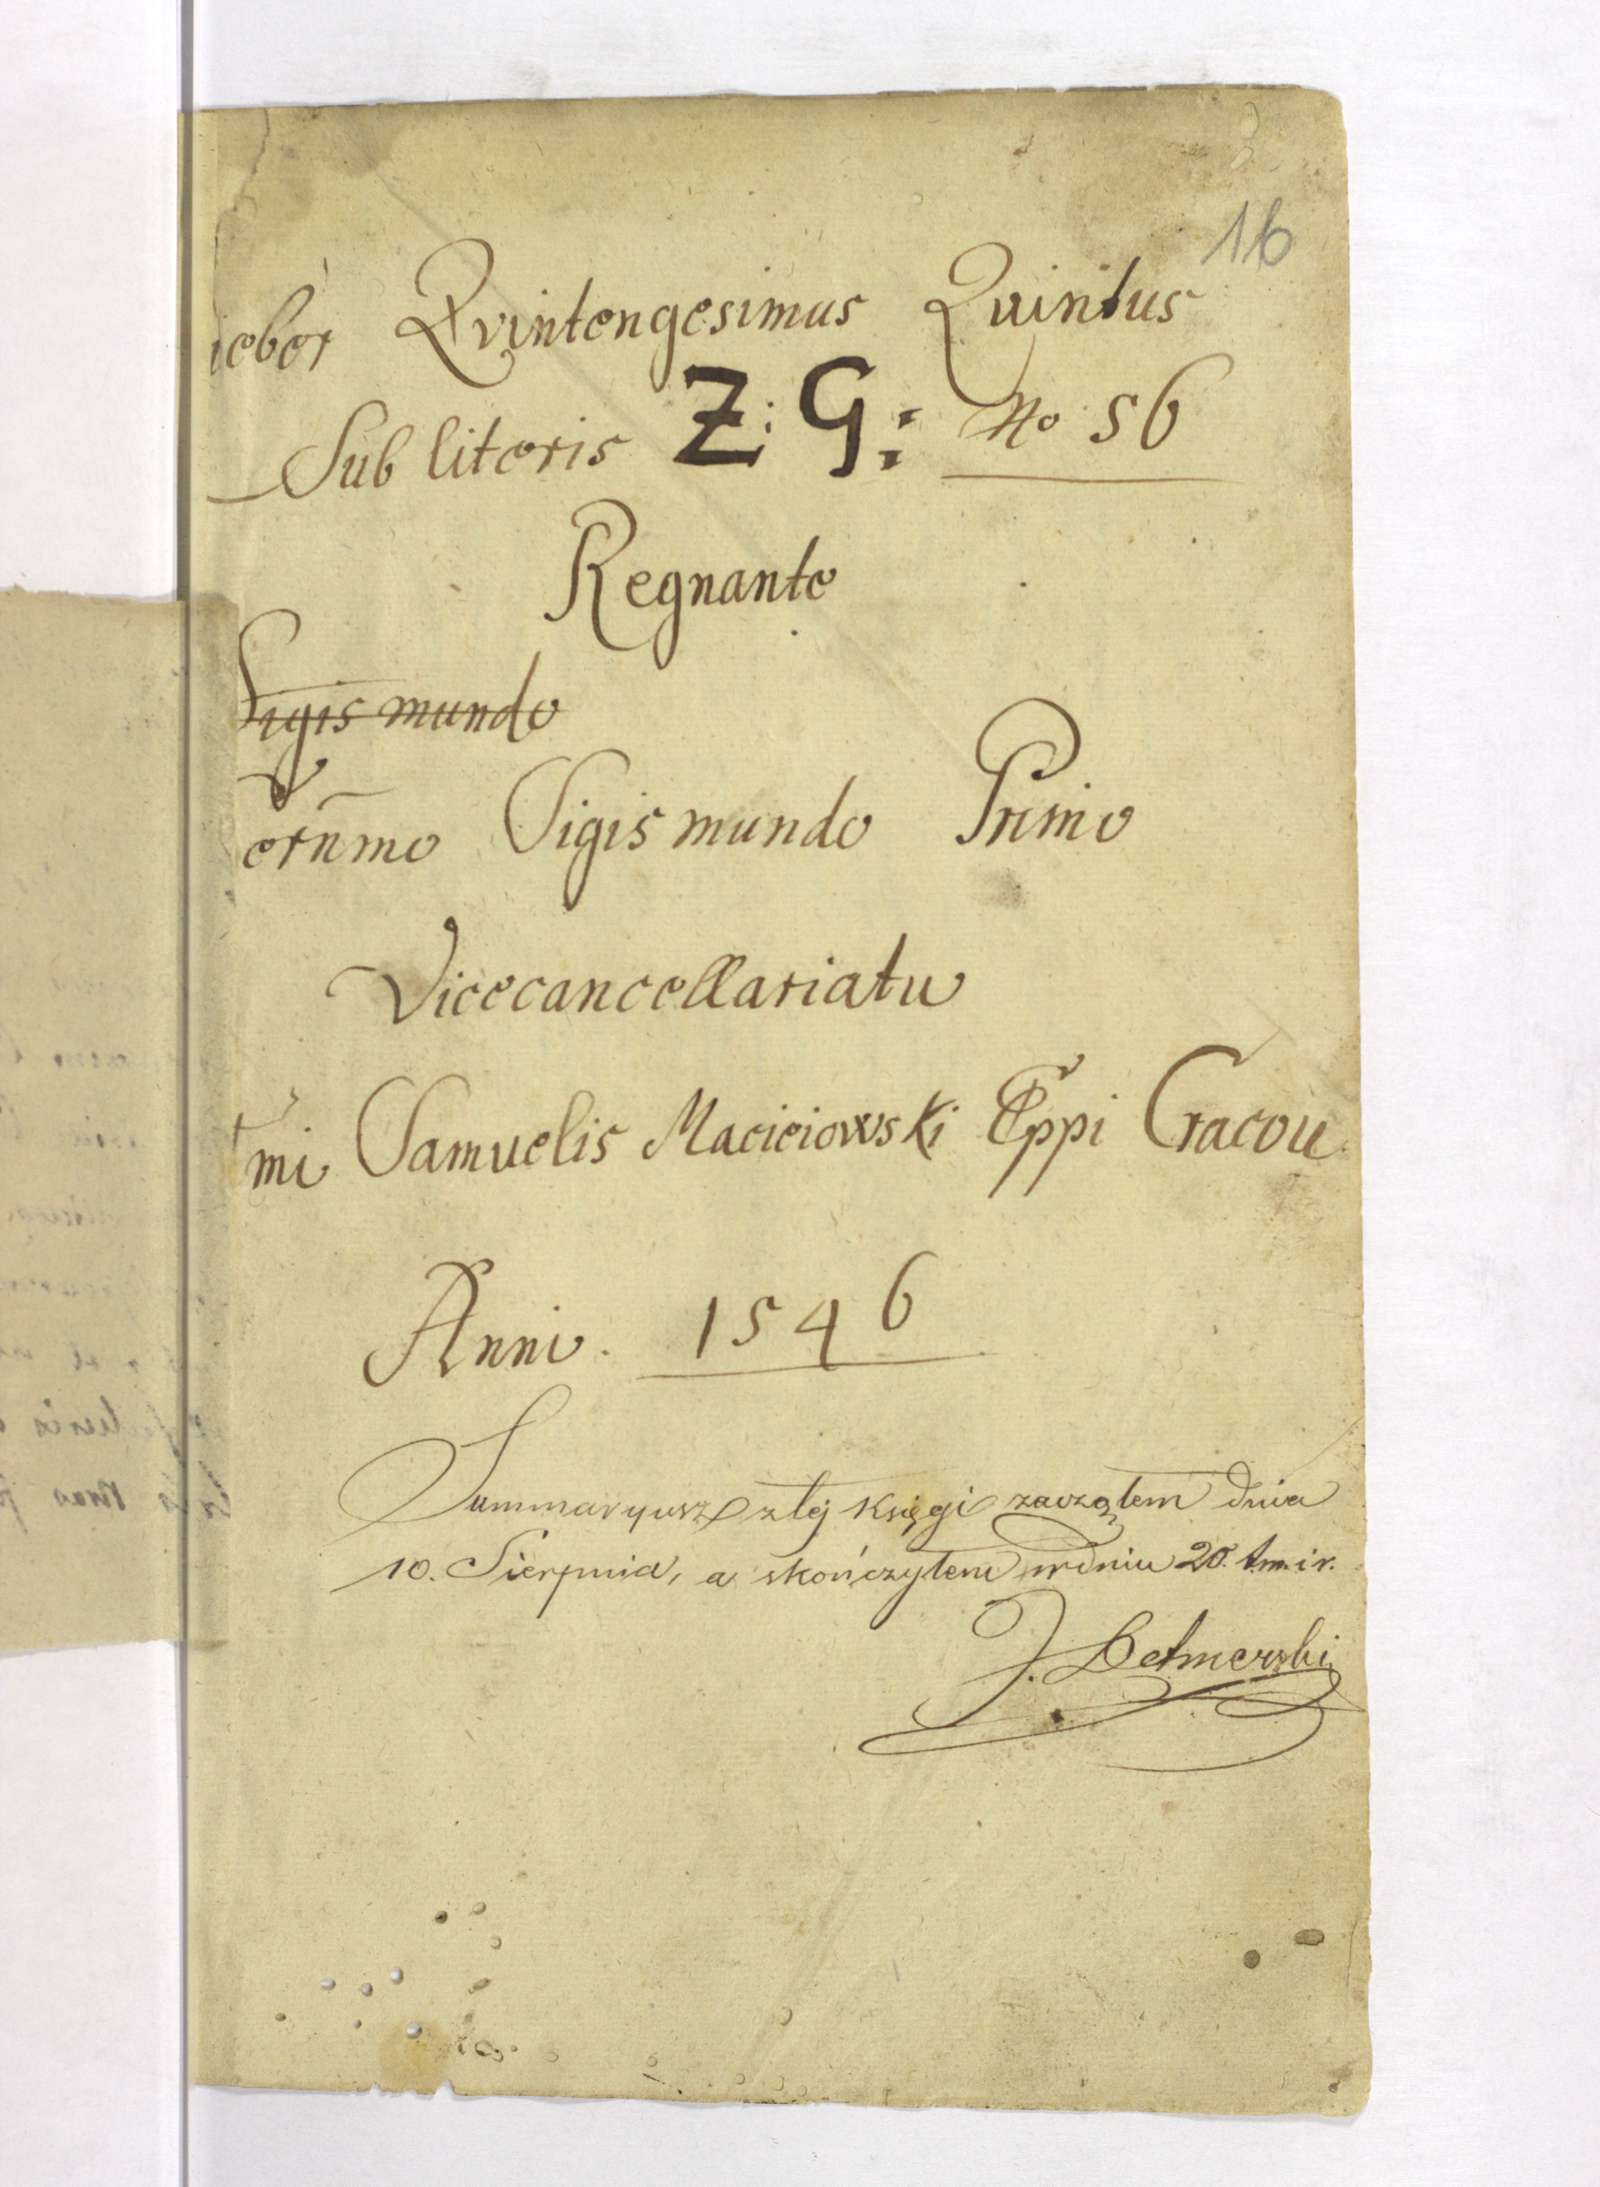 16
ieber Qvintengesimus Quintus
Sub literis Z: G: No 56
Regnante
Sigismundo
ernmo Sigismundo Primo
Vicecancellariatu
mi Samuelis Macieiowski Eppi Cracov
Anni. 1546
Summaryusz ztej księgi zacząłem dnia
10. Sierpnia, a skończyłem w dniu 20. t.m. i r.